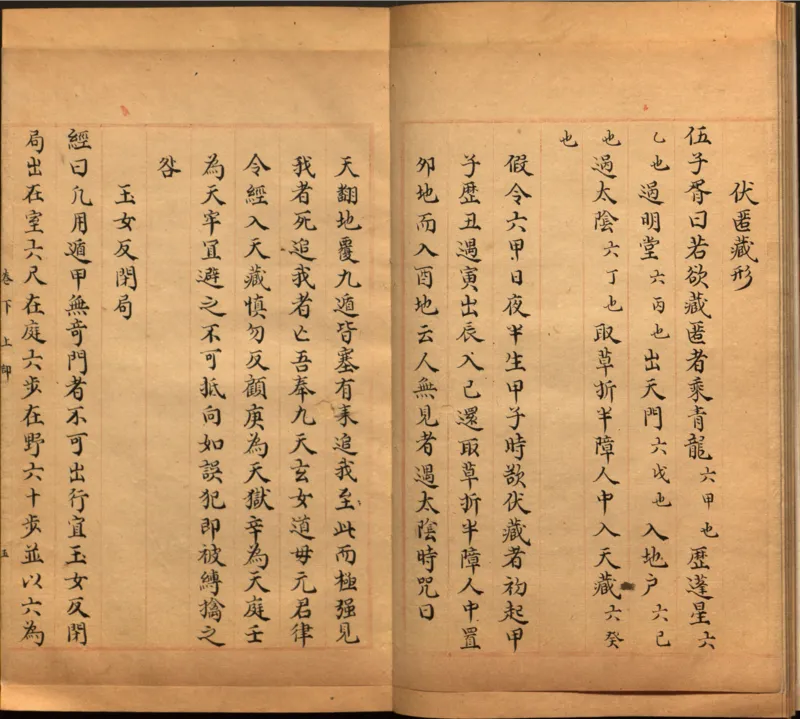 伏匿藏形
伍子胥曰若欲藏匿者乘青龍六甲也歷蓬星六
乙也過明堂六丙也出天門六戊也入地户六己
也過太陰六丁也取草折半障人中入天藏六癸
也
假令六甲日夜半生甲子時欲伏藏者初起甲
子歷丑過寅出辰入己還取草折半障人中置
夘地而入酉地云人無見者過太陰時咒曰
天翻地覆九遁皆塞有来追我至此而極强見
我者死追我者亡吾奉九天玄女道母元君律
令經入天藏慎勿反顧庚為天獄辛為天庭壬
為天牢宜避之不可抵向如誤犯即被縛擒之
咎
玉女反閉局
經曰凡用遁甲無竒門者不可出行宜玉女反閉
局出在室六尺在庭六步在野六十步並以六為
卷下上
五